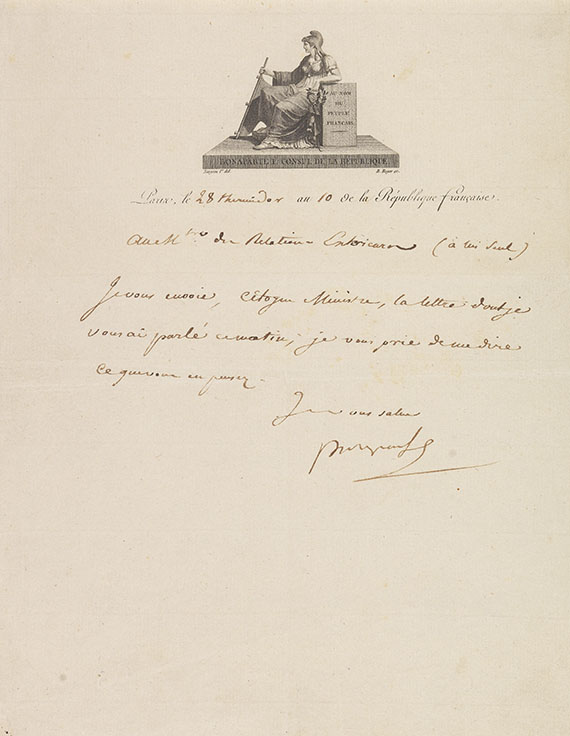 AU NOM
DU
PEUPLE
FRANCAIS.
BONAPARTE 1er CONSUL DE LA REPUBLIQUE
B. Roger sc.
Paris, le 28 thermidor an 10 de la République française.
Au Mtre des Relations Extérieures (à lui seul)
Je vous envoie, Citoyen Ministre, la lettre dont je
vous ai parlé ce matin; je vous prie de me dire
ce que vous en pensez.
Je vous salue